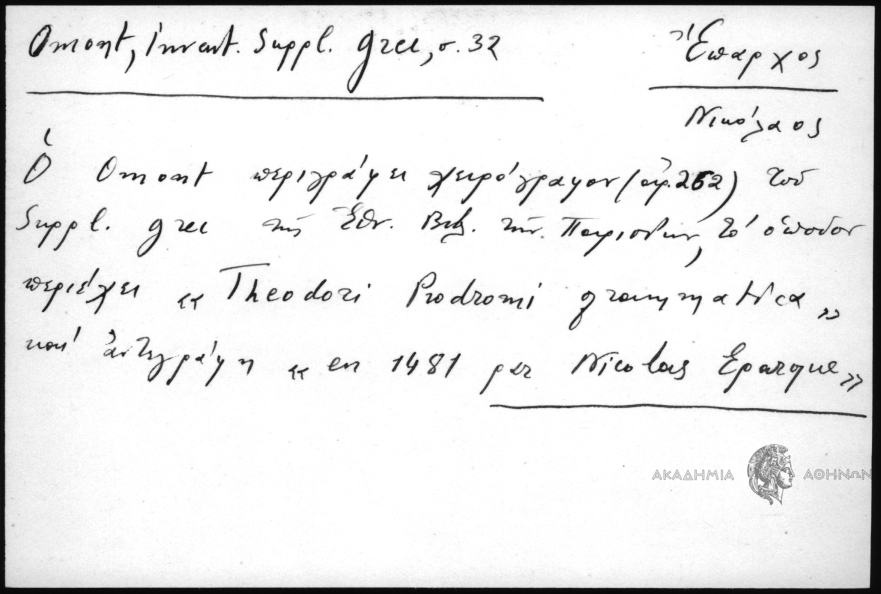 Omont, Invent. Suppl. grec, σ. 32
Ἔπαρχος
Νικόλαος
Ὁ Omont περιγράφει χειρόγραφον (ἀρ. 262) τοῦ
Suppl. grec τῆς Ἐθν. Βιβ. τῶν Παρισίων, τό ὁποῖον
περιέχει « Theodori Prodromi grammatica »
καί ἀντεγράφη « en 1481 par Nicolas Eparque »
ΑΚΑΔΗΜΙΑ ΑΘΗΝΩΝ